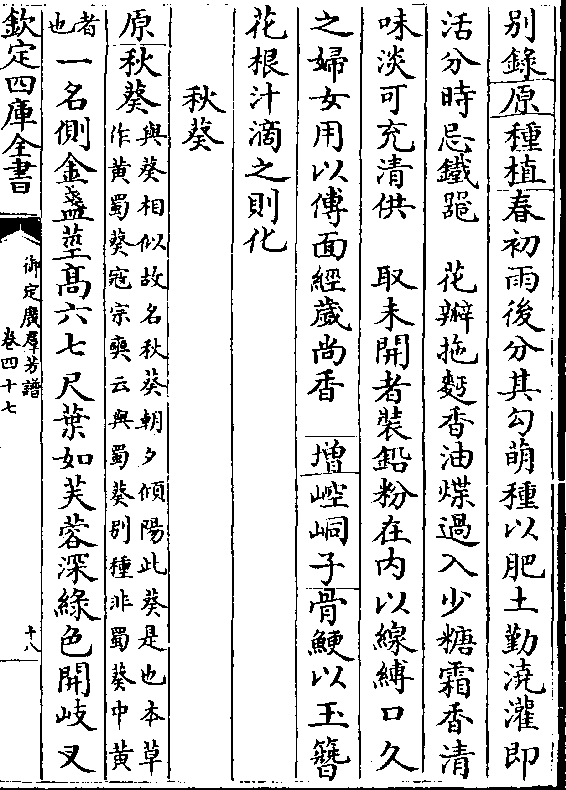 別錄原種植春初雨後分其勾萌種以肥土勤澆灌即
活分時忌鐵器　花瓣拖麪香油煠過入少糖霜香清
味淡可充清供　取未開者裝鉛粉在内以線縛口久
之婦女用以傅面經歲尚香　增崆峒子骨鯁以玉簪
花根汁滴之則化
秋葵
原秋葵與葵相似故名秋葵朝夕傾陽此葵是也本草
作黄蜀葵寇宗奭云與蜀葵别種非蜀葵中黄
者也一名側金盞莖髙六七尺葉如芙蓉深緑色開岐叉
欽定四庫全書
御定廣羣芳譜
卷四十七
十八